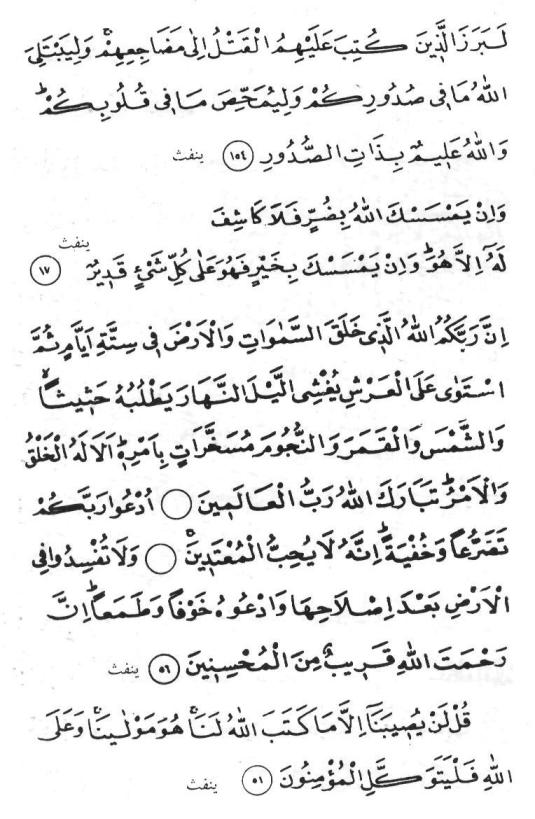 لَبَرَزَ الَّذِينَ كُتِبَ عَلَيْهِمُ الْقَتْلُ اِلٰى مَضَاجِعِهِمْۚ وَلِيَبْتَلِيَ
اللهُ مَا فٖى صُدُورِكُمْ وَلِيُمَحِّصَ مَا فٖى قُلُوبِكُمْۜ
وَاللهُ عَلٖيمٌ بِذَاتِ الصُّدُورِ (١٥٤) ينفث
وَاِنْ يَمْسَسْكَ اللهُ بِضُرٍّ فَلَا كَاشِفَ
لَهُٓ اِلَّا هُوَۜ وَاِنْ يَمْسَسْكَ بِخَيْرٍ فَهُوَ عَلٰى كُلِّ شَيْءٍ قَدٖيرٌ (١٧) ينفث
اِنَّ رَبَّكُمُ اللهُ الَّذٖى خَلَقَ السَّمٰوَاتِ وَالْاَرْضَ فٖى سِتَّةِ اَيَّامٍ ثُمَّ
اسْتَوٰى عَلَى الْعَرْشِ يُغْشِى الَّيْلَ النَّهَارَ يَطْلُبُهُ حَثٖيثاًۙ
وَالشَّمْسَ وَالْقَمَرَ وَالنُّجُومَ مُسَخَّرَاتٍ بِاَمْرِهٖۜ اَلَا لَهُ الْخَلْقُ
وَالْاَمْرُۜ تَبَارَكَ اللهُ رَبُّ الْعَالَمٖينَ ○ اُدْعُوا رَبَّكُمْ
تَضَرُّعاً وَخُفْيَةًۜ اِنَّهُ لَا يُحِبُّ الْمُعْتَدٖينَۚ ○ وَلَا تُفْسِدُوا فِى
الْاَرْضِ بَعْدَ اِصْلَاحِهَا وَادْعُوهُ خَوْفاً وَطَمَعاًۜ اِنَّ
رَحْمَتَ اللهِ قَرٖيبٌ مِنَ الْمُحْسِنٖينَ (٥٦) ينفث
قُلْ لَنْ يُصٖيبَنَٓا اِلَّا مَا كَتَبَ اللهُ لَنَاۚ هُوَ مَوْلٰينَاۚ وَعَلَى
اللهِ فَلْيَتَوَكَّلِ الْمُؤْمِنُونَ (٥١) ينفث